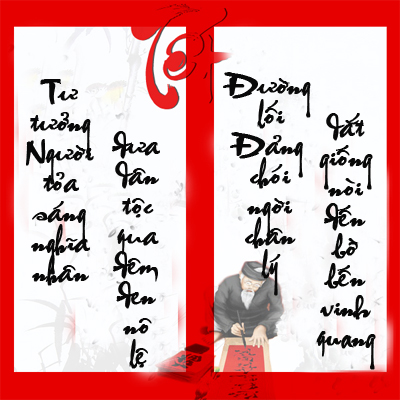 Tết
Tư tưởng Người tỏa sáng nghĩa nhân
đưa dân tộc qua đêm đen nô lệ
Đường lối Đảng chói ngời chân lý
dắt giống nòi đến bờ bến vinh quang